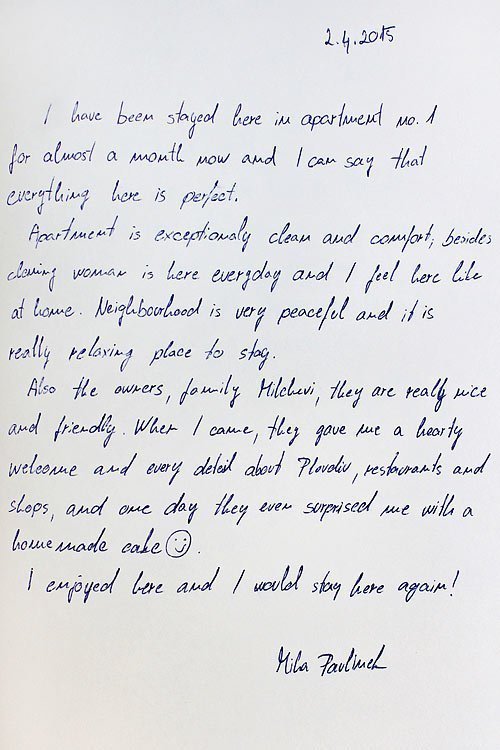 2.4.2015
I have been stayed here in apartment no. 1
for almost a month now and I can say that
everything here is perfect.
Apartment is exceptionaly clean and comfort, besides
claning woman is here everyday and I feel here like
at home. Neighbourhood is very peaceful and it is
really relaxing place to stay.
Also the owners, family Milchevi, they are really nice
and friendly. When I came, they gave me a hearty
welcome and every detail about Plovdiv, restaurants and
shops, and one day they even surprised me with a
homemade cake ☺.
I enjoyed here and I would stay here again!
Miha Pavlinek